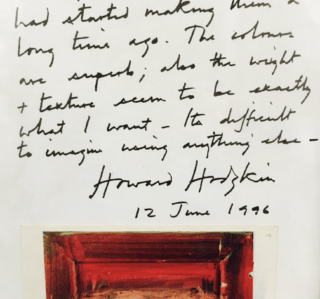 had started making them a
long time ago. The colours
are superb; also the weight
+ texture seem to be exactly
what I want – Its difficult
to imagine using anything else –
Howard Hodgkin
12 June 1996